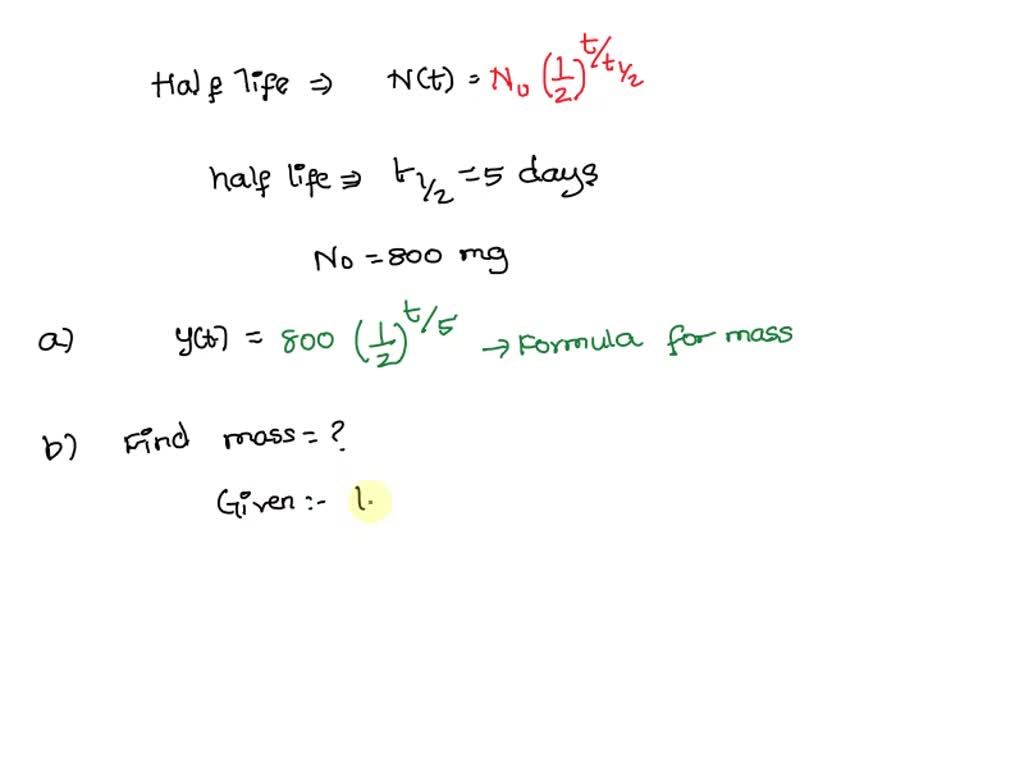 Half life ⇒ N(t) = N₀ (1/2)^t/t1/2
half life ⇒ t1/2 = 5 days
N₀ = 800 mg
a) y(t) = 800 (1/2)^t/5 → Formula for mass
b) Find mass = ?
Given :-